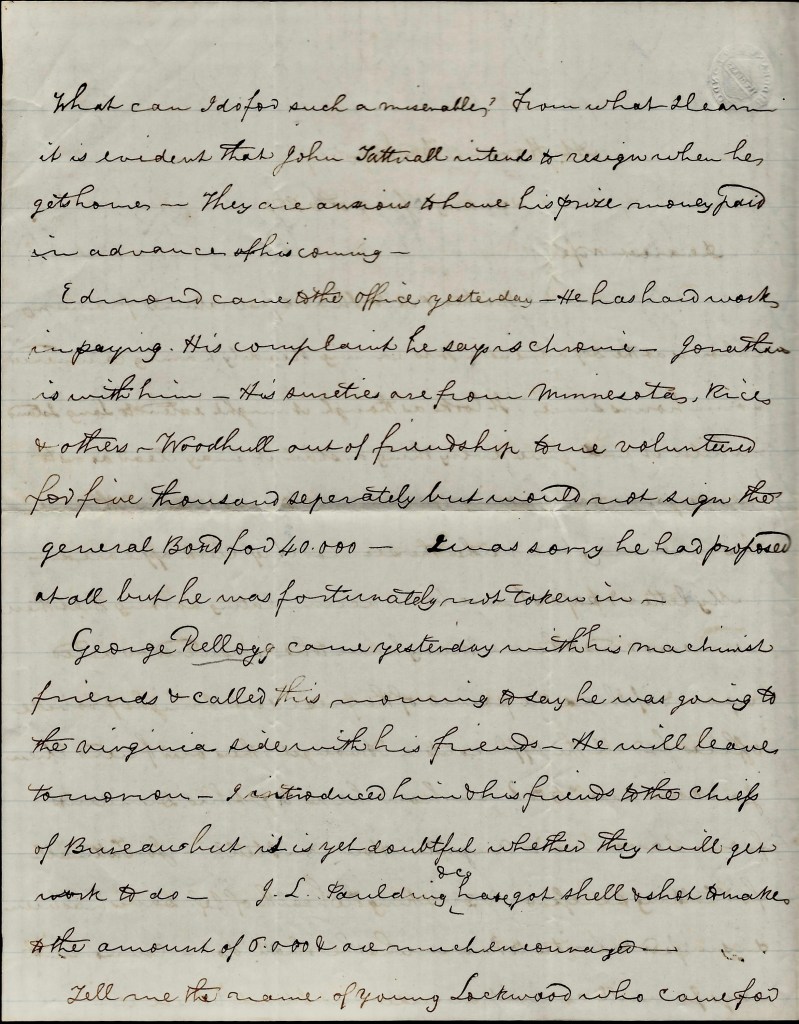 What can I do for such a miserable? From what I learn
it is evident that John Tattnall intends to resign when he
gets home — They are anxious to have his prize money paid
in advance of his coming —
Edmond came to the office yesterday — He has hard work
in paying. His complaint he says is chronic — Jonathan
is with him — His sureties are from Minnesota, Rice
& others — Woodhull out of friendship to me volunteered
for five thousand seperately but would not sign the
general Bond for 40.000 — I was sorry he had proposed
at all but he was fortunately not taken in —
George Kellogg came yesterday with his machinist
friends & called this morning to say he was going to
the virginia side with his friends — He will leave
tomorrow — I introduced him & his friends to the Chiefs
of Bureau but it is yet doubtful whether they will get
work to do — J. L. Paulding &co have got shell & shot to make
to the amount of 6.000 & are much encouraged —
Tell me the name of young Lockwood who came for